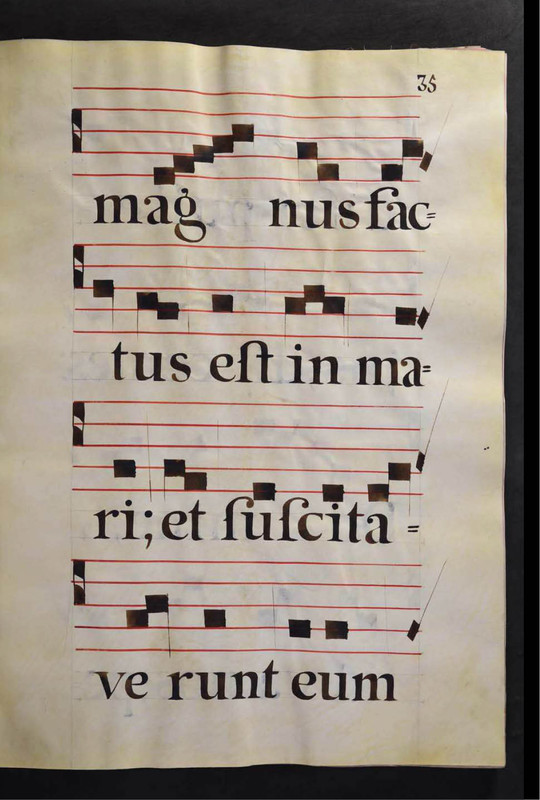 35
mag nus fac=
tus eſt in ma=
ri; et ſuſcita =
ve runt eum